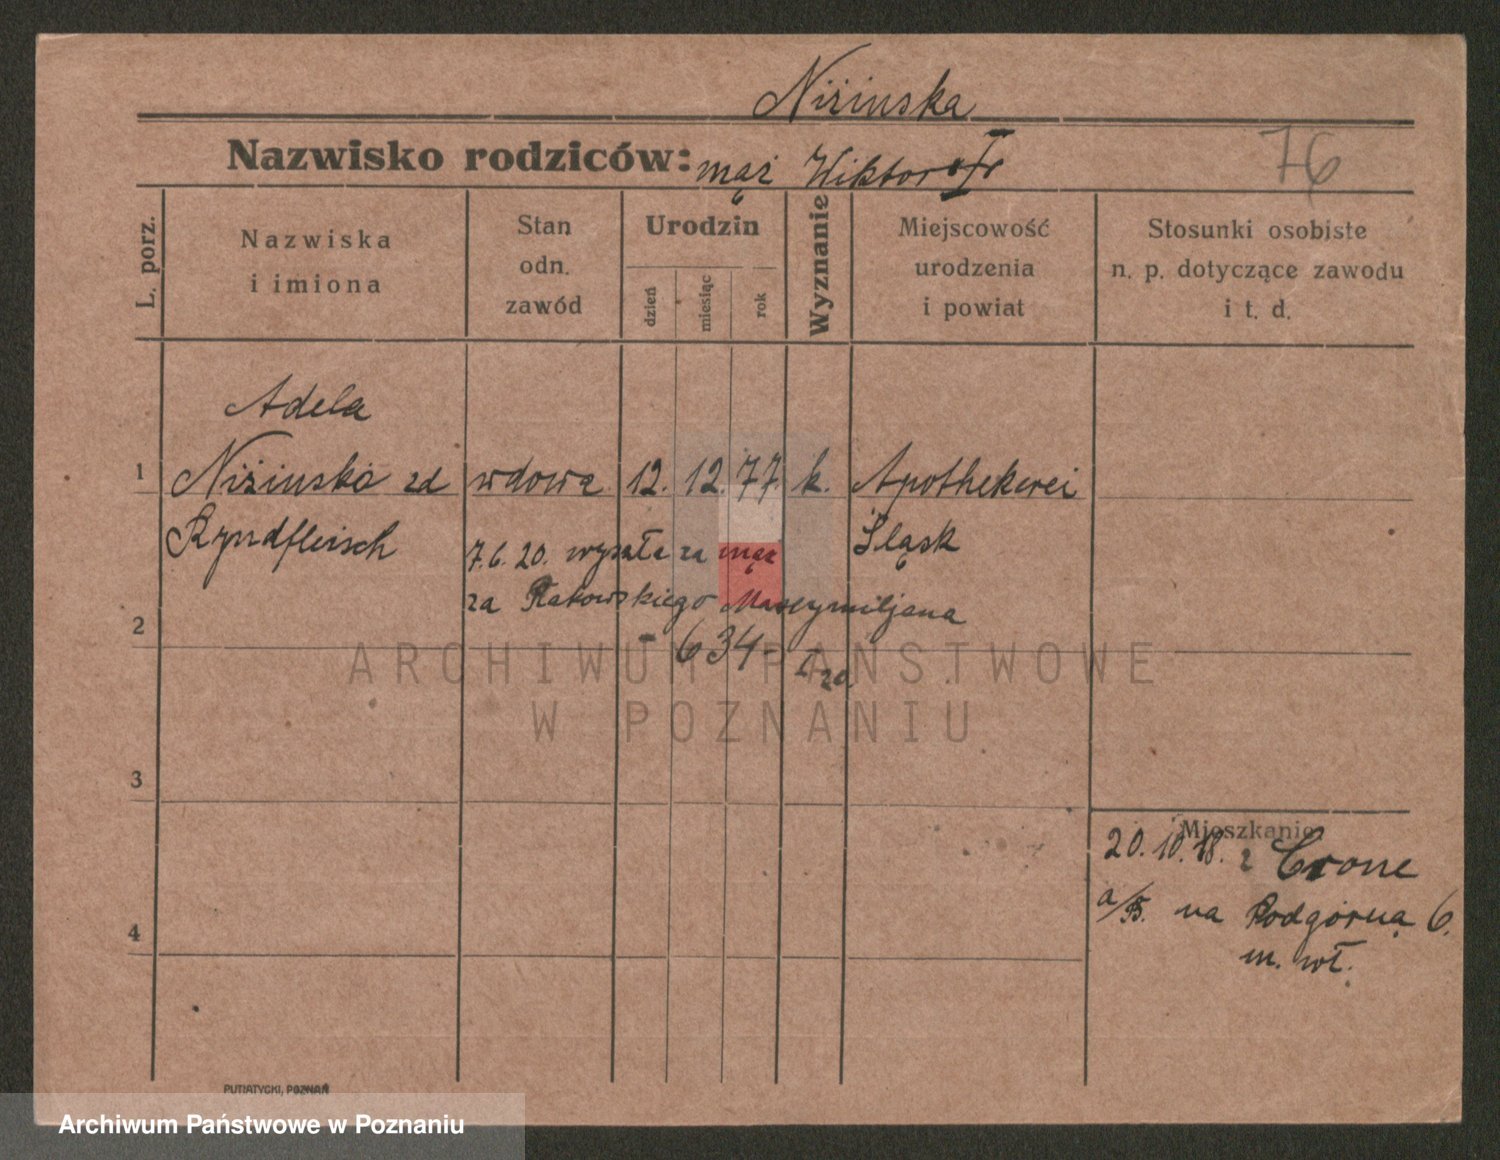 Niżinska
Nazwisko rodziców: mąż Wiktor
76
L. porz.
Nazwiska
i imiona
Stan
odn.
zawód
Urodzin
dzień
miesiąc
rok
Wyznanie
Miejscowość
urodzenia
i powiat
Stosunki osobiste
n. p. dotyczące zawodu
i t. d.
Adela
1 Niżinska zd wdowa 12. 12. 77. k. Apothekerei
Ryndfleisch Śląsk
7.6.20. wyszła za mąż
za Rakowskiego Maxymiljana
2
634-
ARCHIWUM PAŃSTWOWE
W POZNANIU
3
Mieszkanie
20.10.18. z Crone
a/B. na Podgórną 6.
m. wł.
4
PUTIATYCKI, POZNAŃ
Archiwum Państwowe w Poznaniu